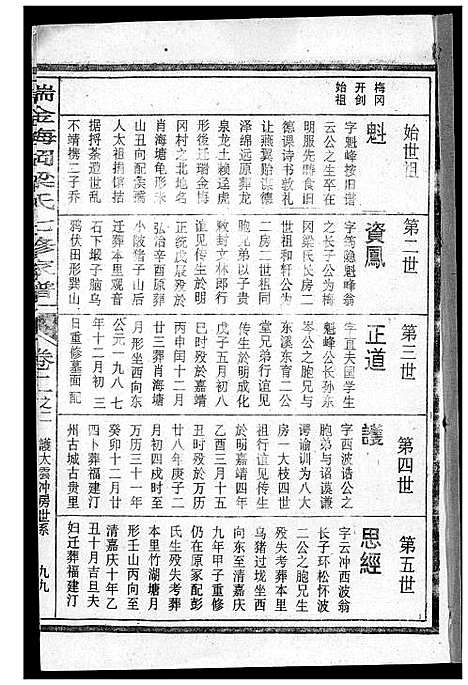 梅冈
开剑
始祖
始世祖
魁
字魁峰按旧谱
云公之生卒在
明服先畴食旧
德课诗书敦礼
让燕翼贻谋德
泽绵远原葬龙
泉龙土赖迳虎
形後迁瑞金梅
冈村之北地名
肖海塘龟形未
山丑向配侯孺
人太祖捐馆拮
据捋荼遭世乱
不靖携二子乔
第二世
資鳳
字筠隐魁峰翁
之长子公为梅
冈梁氏长房二
世祖和轩公为
二房二世祖同
胞兄弟以子贵
敕封文林郎行
谊见传生於明
正统戊辰殁於
弘治辛酉原葬
小陂借子山后
迁葬本里观音
石下蝦子脑乌
鸦伏田形巽山
第三世
正道
字宜夫国学生
魁峰公长孙东
岑公之胞兄与
东溪东育二公
堂兄弟行谊见
传生於明成化
戊子五月殁时
已时殁於嘉靖
丙申闰十二月
廿三葬肖海塘
月形坐山
公元一九八七
年十二月初三
日重修墓面記
第四世
護
字西波诰公之
胞弟与诏谟谦
谔谕训为八大
房一大枝四世
祖行谊见传生
於明嘉靖四年
乙酉三月十五
丑时殁於万历
廿八年庚子二
月初四戌时至
万历三十一年
癸卯十二月廿
四卜葬福建汀
州古城古贵里
第五世
思經
字云冲西波翁
长子环松怀波
二公之胞兄生
殁失考葬本里
乌猪过垅坐西
向东至清嘉庆
九年甲子重修
仍在原冢配彭
氏生殁失考葬
本里竹湖塘月
形壬山丙向至
清嘉庆十年乙
丑十月吉旦夫
妇迁葬福建汀
瑞金梅冈梁氏七修家谱
卷二之一
護大雲冲房世系
九九